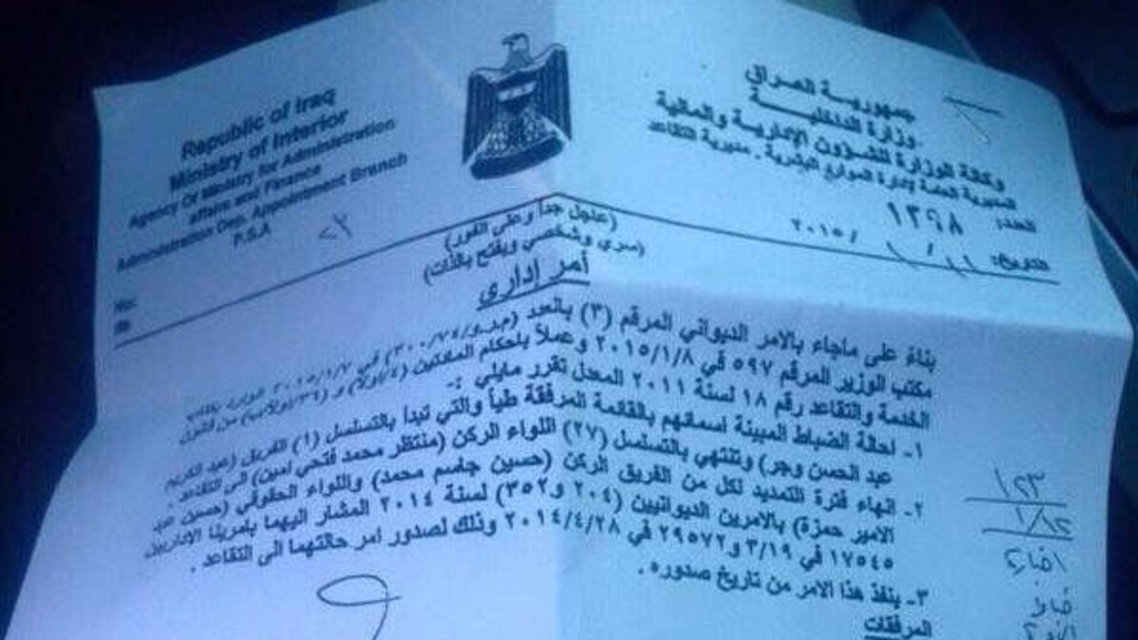 Republic of Iraq
Ministry of Interior
Agency Of Ministry for Administration
affairs and Finance
Administration Dep. Appointment Branch
P.S.A
No:
جمهورية العراق
وزارة الداخلية
وكالة الوزارة للشؤون الإدارية والمالية
المديرية العامة لإدارة الموارد البشرية . مديرية التقاعد
العدد: ١٣٩٨
التاريخ: / ٢٠١٥
(عاجل جداً وعلى الفور)
(سري وشخصي ويفتح بالذات)
أمر إداري
بناءً على ماجاء بالامر الديواني المرقم (٣) بالعدد (م.ر.و/٣٠٠/٧٤) في ٢٠١٥/١/٧
مكتب الوزير المرقم ٥٩٧ في ٢٠١٥/١/٨ وعملاً بأحكام المادتين من قانون
الخدمة والتقاعد رقم ١٨ لسنة ٢٠١١ المعدل تقرر مايلي :-
١- احالة الضباط المبينة اسمائهم بالقائمة المرفقة طياً والتي تبدأ بالتسلسل (١) الفريق (عبد الكريم
عبد الحسن وجر) وتنتهي بالتسلسل (٢٧) اللواء الركن (منتظر محمد فتحي امين) الى التقاعد .
٢- انهاء فترة التمديد لكل من الفريق الركن (حسين جاسم محمد) واللواء الحقوقي (حسين عبد
الامير حمزة) بالامرين الديوانيين (٢٠٤ و٣٥٢) لسنة ٢٠١٤ المشار اليهما بأمرينا الاداريين
١٧٥٤٥ في ٣/١٩ و٢٩٥٧٢ في ٢٠١٤/٤/٢٨ وذلك لصدور امر احالتهما الى التقاعد .
٣- ينفذ هذا الامر من تاريخ صدوره .
المرفقات
١٢٣
١/١٢